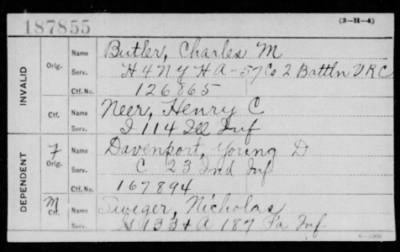 187855
(3-H-4)
INVALID
Orig. Name Butler, Charles M
Serv. H 4 N Y H A - 57 Co 2 Battln V R C
Ctf. No. 126865
Ctf. Name Neer, Henry C
Serv. I 114 Ill Inf
DEPENDENT
F Orig. Name Davenport, Young D
Serv. C 23 Ind Inf
Ctf. No. 167894
M Ctf. Name Sweger, Nicholas
Serv. 133 & A 187 Pa Inf